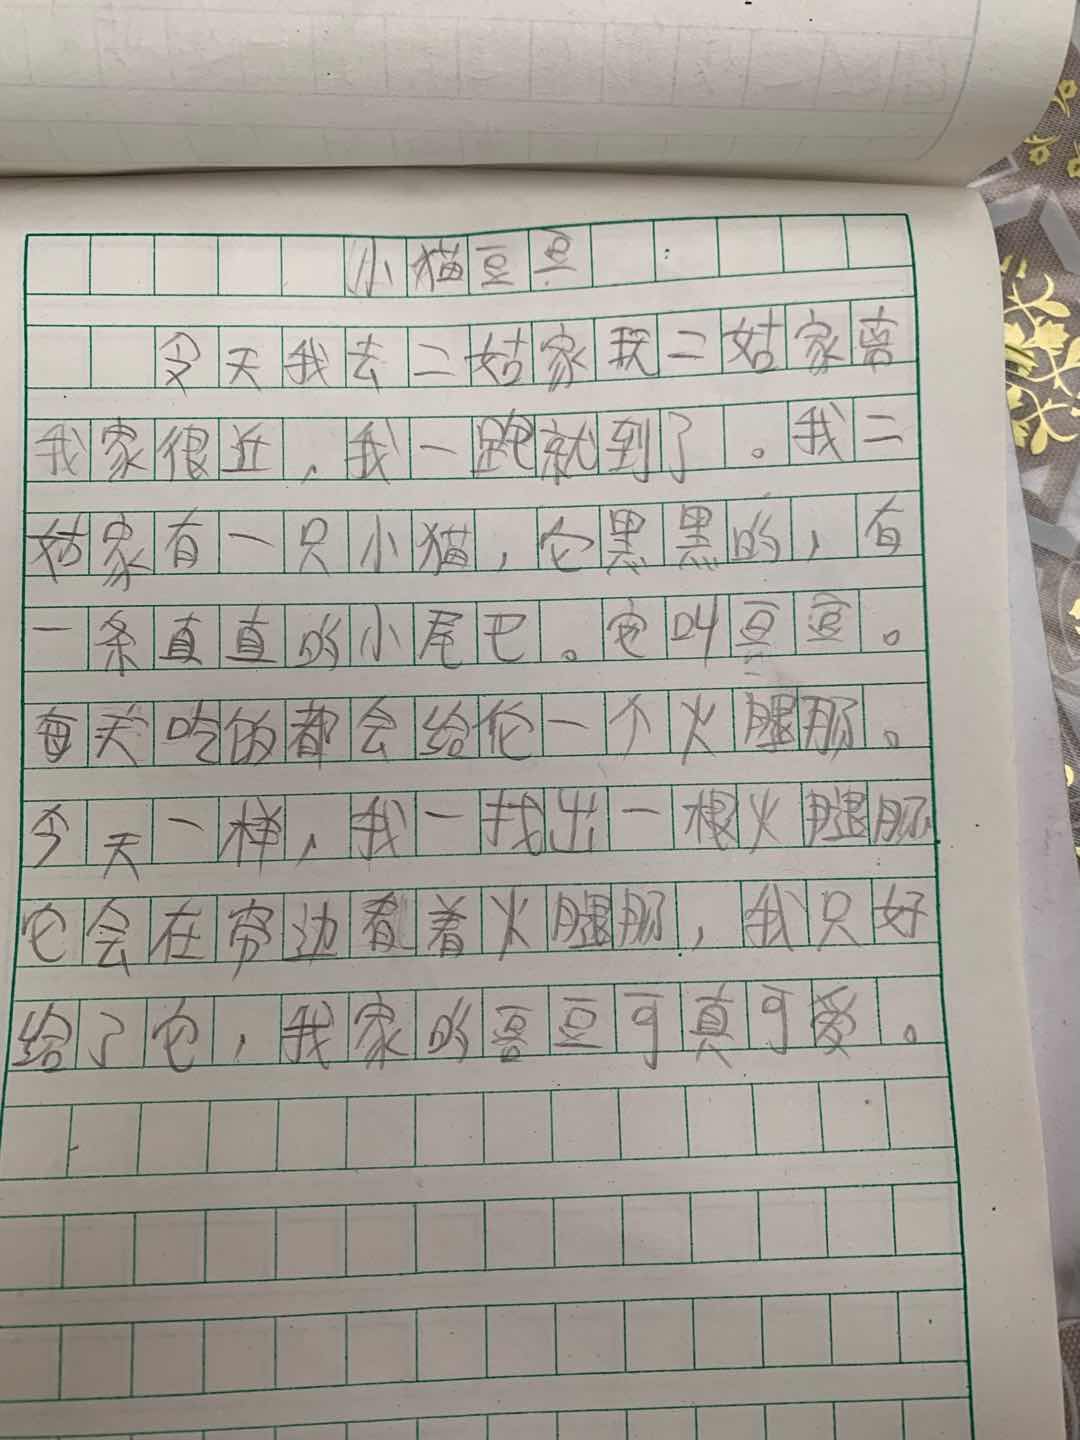 小猫豆豆
今天我去二姑家我二姑家离
我家很近,我一跑就到了。我二
姑家有一只小猫,它黑黑的,有
一条真直的小尾巴。它叫豆豆。
每天吃的都会给它一个火腿肠。
今天一样,我一找出一根火腿肠
它会在旁边看着火腿肠,我只好
给了它,我家的豆豆可真可爱。